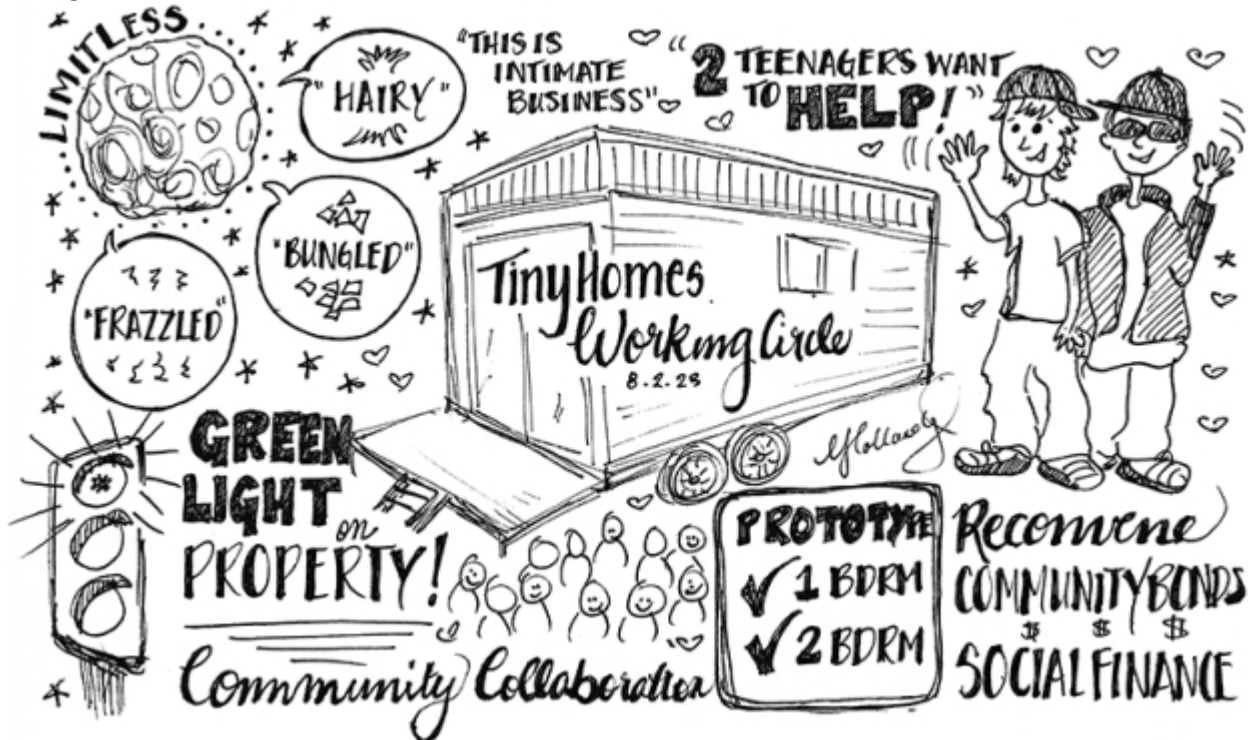 LIMITLESS
"HAIRY"
"THIS IS
INTIMATE
BUSINESS"
"2 TEENAGERS WANT
TO HELP!"
"BUNGLED"
"FRAZZLED"
Tiny Homes
Working Circle
8.2.23
GREEN
LIGHT
on
PROPERTY!
Community Collaboration
PROTOTYPE
✓ 1 BDRM
✓ 2 BDRM
Reconvene
COMMUNITY BONDS
$ $ $
SOCIAL FINANCE